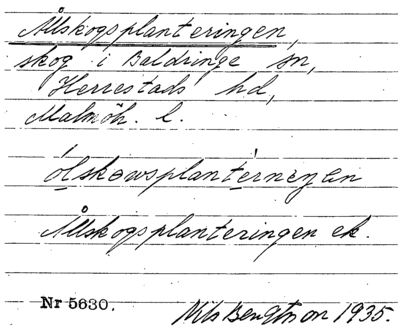 Ållskogsplanteringen,
skog i Baldringe sn,
Herrestads hd,
Malmöh. l.
ólskowsplantérneyen
Ållskogsplanteringen ek.
Nr 5630.
Nils Bengtson 1935.